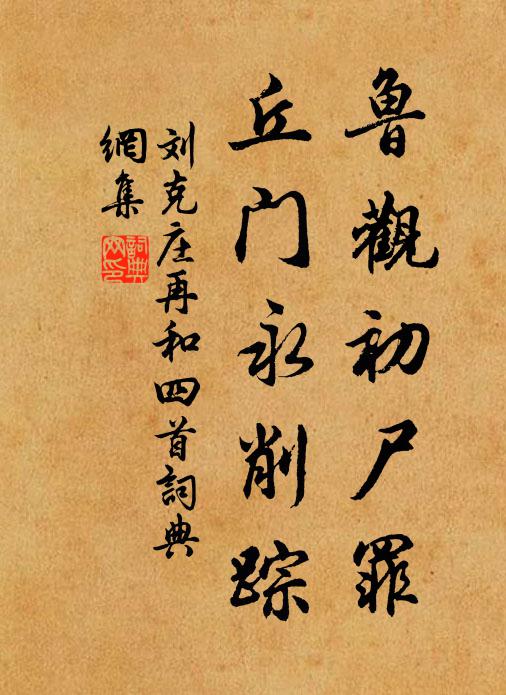 魯觀初尸罪
丘门永削踪
刘克庄再和四首詞典
網集
詞典网印